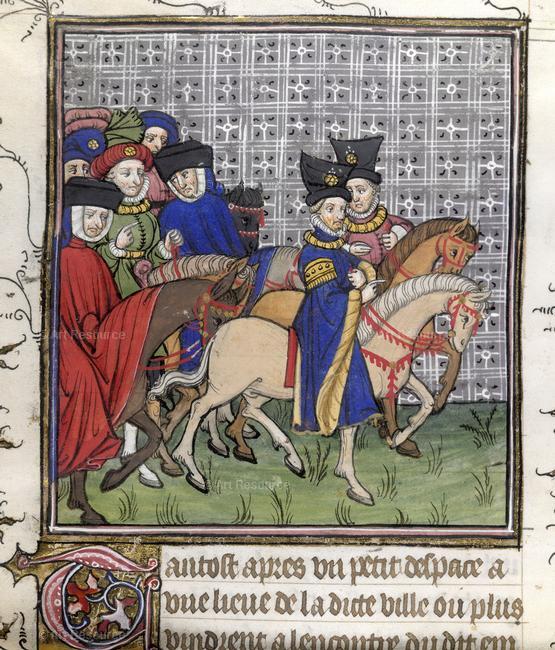 © Art Resource
© Art Resource
Tantost apres vn petit despace a
vne lieue de la dicte ville ou plus
vindrent a lencontre du dit em